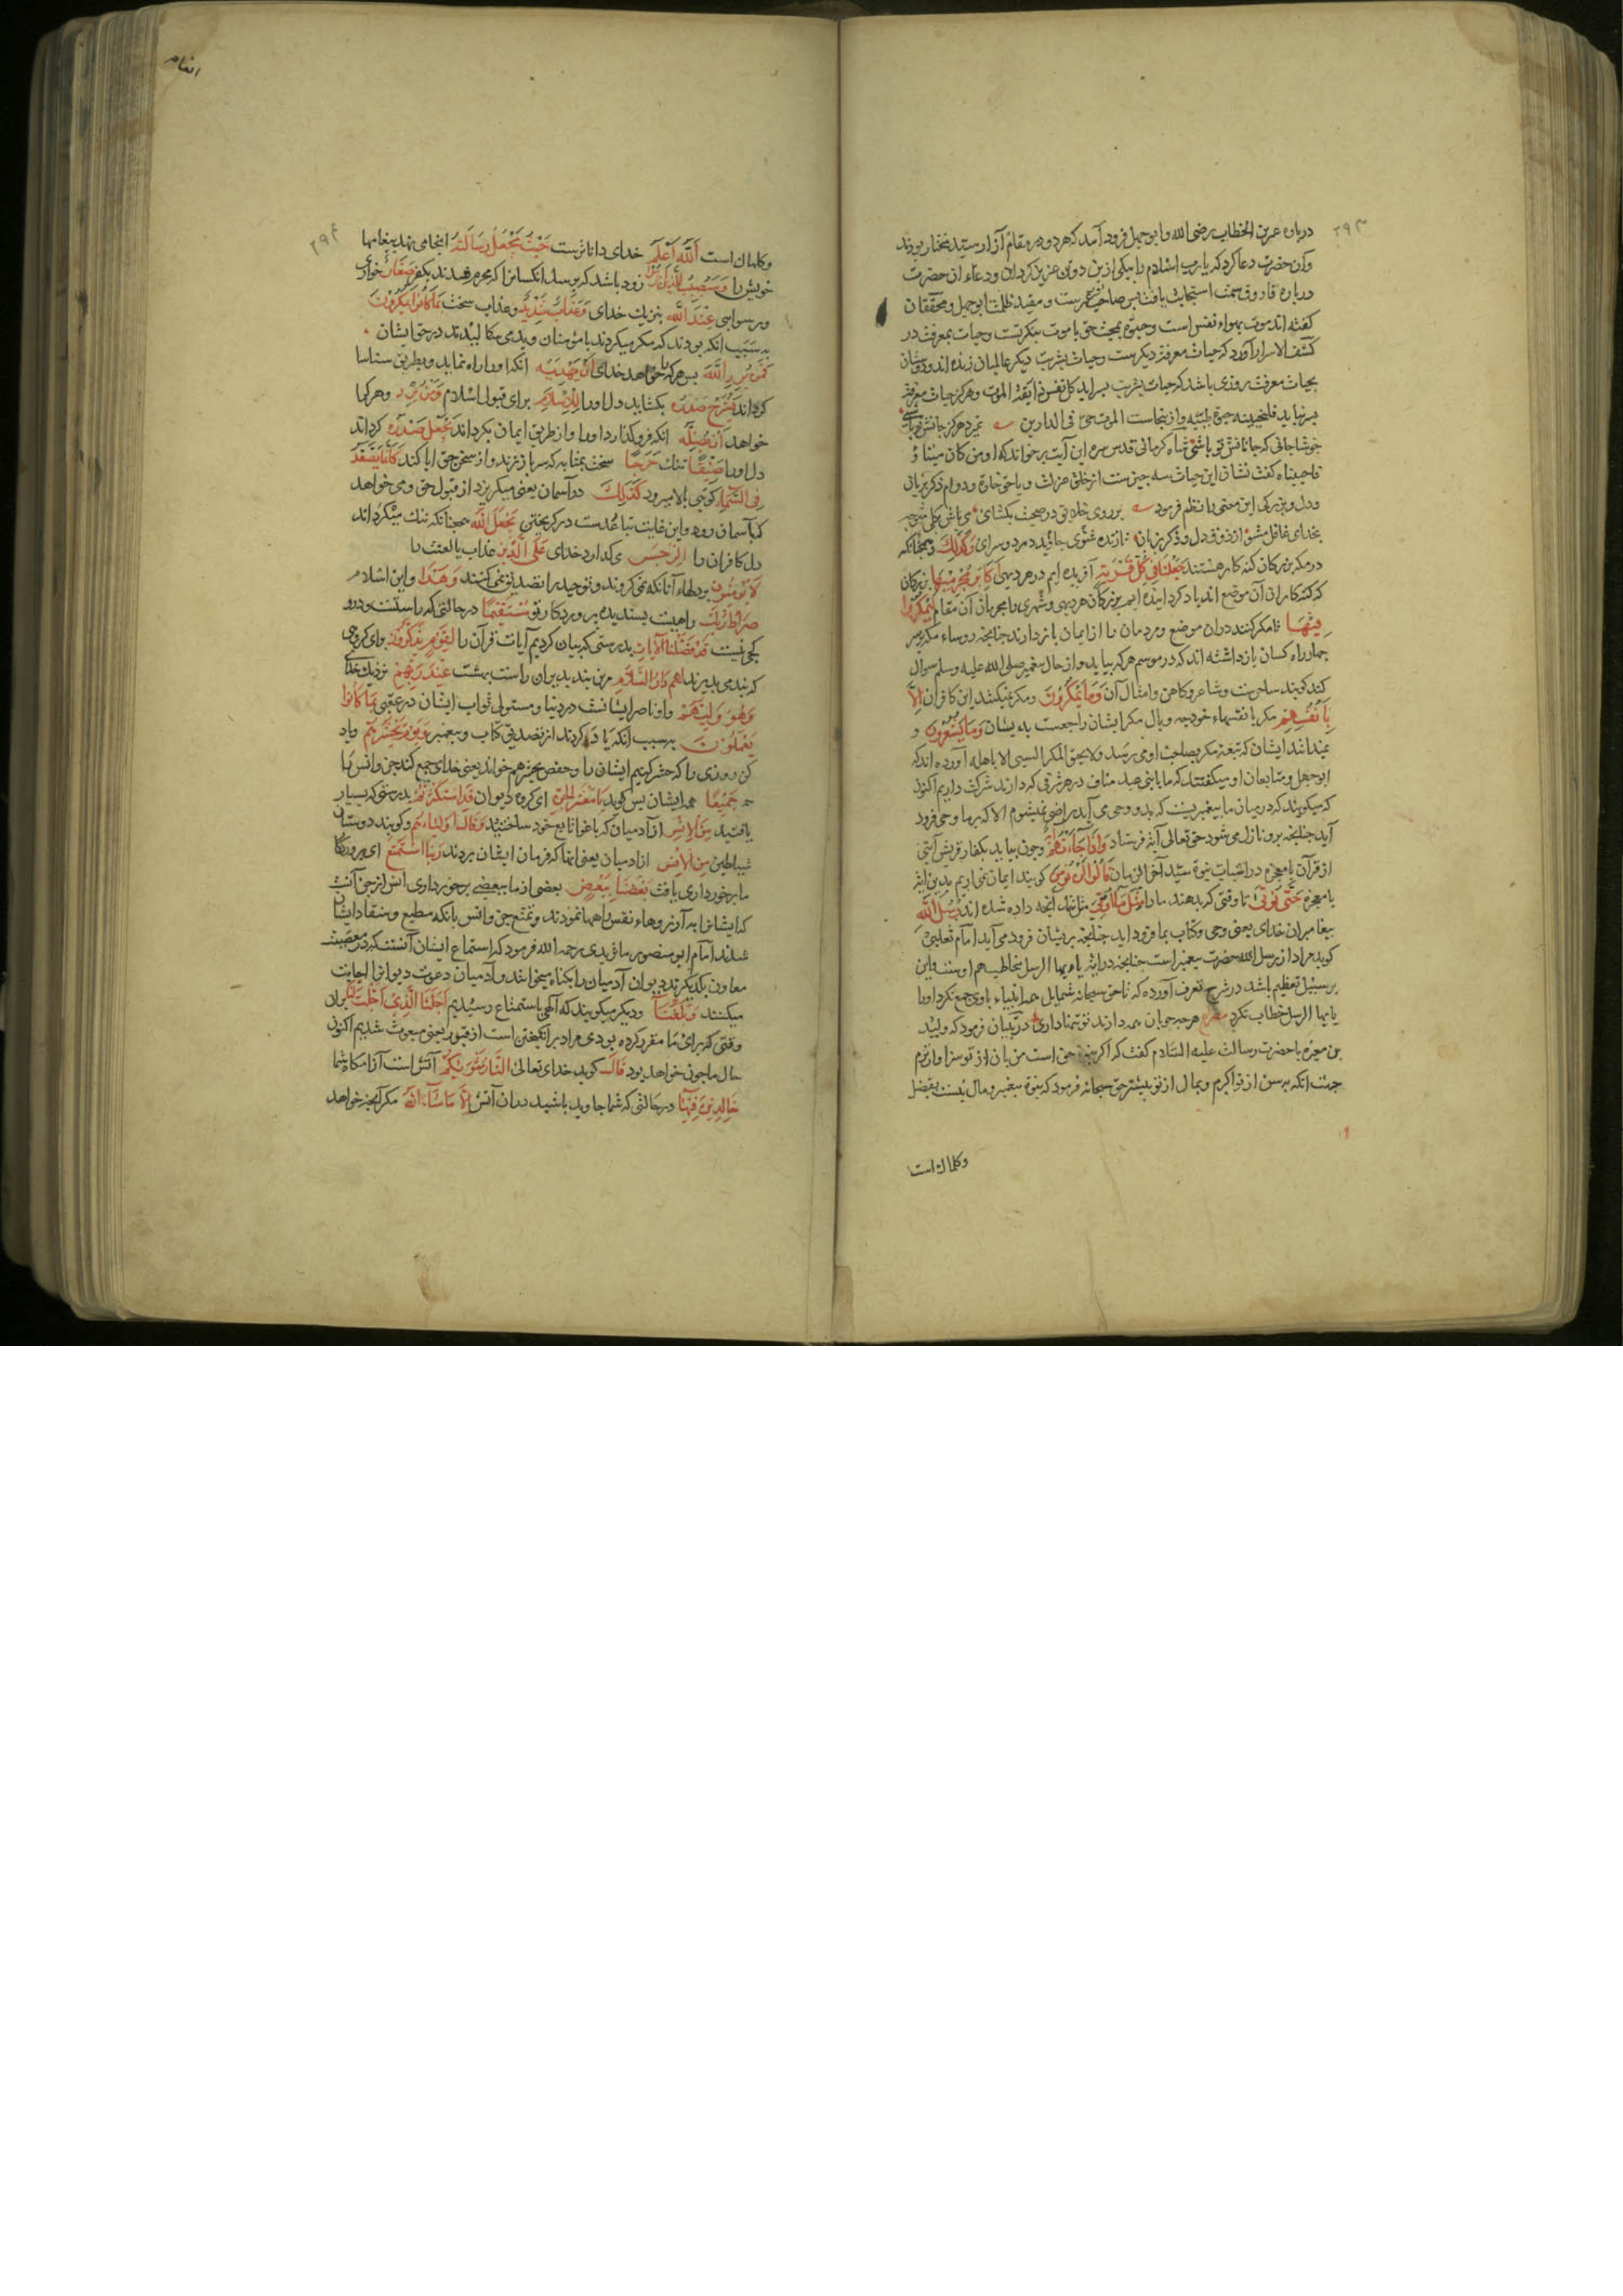 ۲۹۳
درباره عمر بن الخطاب رضی الله وابو جهل فرود آمد که هر دو در مقام آزار سید مختار بودند
وآن حضرت دعا کرد که یا رب اسلام را بیکی ازین دو تن عزیز کردان ودعاء ان حضرت
درباره فاروق سمت استجابت یافت پس صاحب عمرست ومقید ظلمات ابو جهل ومحققان
کفته اند موت بهواء نفس است وحیوة بمحبت حق یا موت بنکرتست وحیات بمعرفت در
کشف الاسرار آورد که حیات معرفت دیکرست وحیات بشریت دیکر عالمیان زنده اند ودوستان
بحیات معرفت روزی باشد که حیات بشریت بسر اید کل نفس ذایقة الموت وهرکز حیات معرفت
بسر نیاید فلنحیینه حیوة طیبه واز ینجاست المؤمن حی فی الدارین نمیرد هرکز جانش تو باشی
خوشا جانی که جانانش تو باشی شاه کرمانی قدس سره این آیت بر خواند که اومن کان میتا
فاحییناه کفت نشان این حیات سه چیزست از خلق عزلت وباحق خلوة ودوام ذکر بزبان
ودل وبزرکی این معنی را نظم فرموده بر روی خلایق در صحبت بکشای می باش بکلی متوجه
بخدای غافل مشو از ذوق دل وذکر زبان تا زنده شوی جاوید در دو سرای وَكَذٰلِكَ وهمچنانکه
در مکه بزرکان کنه کار هستند جَعَلْنَا فِي كُلِّ قَرْيَةٍ آفریده ایم در هر دیهی اَكَابِرَ مُجْرِمِيهَا بزرکان
که کنه کاران آن موضع اند یاد کردانیده ایم بزرکان هر دیهی وشهری را مجرمان آن مقام لِيَمْكُرُوا
فِيهَا تا مکر کنند دران موضع ومردمان را از ایمان باز دارند چنانچه روساء مکه بر سر
چهار راه کسان بازداشته اند که در موسم هر که بیاید واز حال پیغمبر صلی الله علیه وسلم سوال
کند کویند ساحرست وشاعر وکاهن وامثال آن وَمَا يَمْكُرُونَ ومکر نمیکنند این کافران اِلَّا
بِاَنْفُسِهِمْ مکر با نفسهاء خود چه وبال مکر ایشان راجعست بدیشان وَمَا يَشْعُرُونَ و
نمیدانند ایشان که نتیجه مکر بصاحب او می رسد ولا یحیق المکر السیئ الا باهله آورده اند که
ابو جهل ومتابعان او میکفتند که ما با بنی عبد مناف در هر شرفی که دارند شرکت داریم اکنون
که میکویند که در میان ما پیغمبریست که بدو وحی می آید راضی نمیشویم الا که بر ما وحی فرود
آید چنانچه برو نازل می شود حق تعالی آیة فرستاد وَاِذَا جَاءَتْهُمْ وچون بیاید بکفار قریش آیتی
از قرآن یا معجزه در اثبات نبوة سید آخر الزمان قَالُوا لَنْ نُؤْمِنَ کویند ایمان نمی اریم بدین ایة
یا معجزه حَتَّى نُؤْتَى تا وقتی که بدهند ما را مِثْلَ مَا اُوتِيَ مثل آنچه داده شده اند رُسُلُ اللّٰهِ
پیغامبران خدای یعنی وحی وکتاب بما فرود اید چنانچه بریشان فرود می آید امام ثعلبی
کوید مراد از رسل الله حضرت پیغمبر است چنانچه در ایة یا ایها الرسل مخاطب هم اوست واین
بر سبیل تعظیم باشد در شرح تعرف آورده که تا حق سبحانه شمایل جمله انبیاء با وی جمع نکرد اورا
یا ایها الرسل خطاب نکرد هر چه خوبان همه دارند تو تنها داری در تبیان فرمود که ولید
بن مغیره با حضرت رسالت علیه السلام کفت که اکر نبوة حق است من بان از تو سزاوارترم
جهت انکه بسن از تو اکبرم وبمال از تو بیشتر حق سبحانه فرمود که نبوة پیغمبر وبمال نیست بفضل
وکمال است
انعام
۲۹۴
وکمال است اَللّٰهُ اَعْلَمُ خدای داناترست حَيْثُ يَجْعَلُ رِسَالَتَهُ انجا می نهد پیغامها
خویش را سَيُصِيبُ الَّذِينَ زود باشد که برسد انکسانرا که مجرم شدند بکفر صَغَارٌ خواری
ورسوایی عِنْدَ اللّٰهِ بنزدیک خدای وَعَذَابٌ شَدِيدٌ وعذاب سخت بِمَا كَانُوا يَمْكُرُونَ
به سبب انکه بودند که مکر میکردند با مؤمنان وبدی می سکالیدند در حق ایشان
فَمَنْ يُرِدِ اللّٰهُ پس هر کرا خواهد خدای اَنْ يَهْدِيَهُ انکه اورا راه نماید وبطریق شناسا
کرداند يَشْرَحْ صَدْرَهُ بکشاید دل اورا لِلْاِسْلَامِ برای قبول اسلام وَمَنْ يُرِدْ وهر کرا
خواهد اَنْ يُضِلَّهُ انکه فرو کذارد اورا واز طریق ایمان بکرداند يَجْعَلْ صَدْرَهُ کرداند
دل اورا ضَيِّقًا تنک حَرَجًا سخت بمثابه که سر باز نزند واز سخن حق ابا کند كَاَنَّمَا يَصَّعَّدُ
فِي السَّمَاءِ کویی بالا میرود كَذٰلِكَ در آسمان یعنی میکریزد از قبول حق ومی خواهد
که بآسمان رود واین غایت تباعدست در کریختن يَجْعَلُ اللّٰهُ همچنانکه تنک میکرداند
دل کافران را الرِّجْسَ می کمارد خدای عَلَى الَّذِينَ عذاب یا لعنت را
لَا يُؤْمِنُونَ بر آنانکه نمی کروند وتوحید را تصدیق نمی کنند وَهٰذَا واین اسلام
صِرَاطُ رَبِّكَ راهیست پسندیده پروردکار تو مُسْتَقِيمًا در حالتی که راستست ودرو
کجی نیست قَدْ فَصَّلْنَا الْاٰيَاتِ بدرستی که بیان کردیم آیات قرآن را لِقَوْمٍ يَذَّكَّرُونَ برای کروهی
که پند می پذیرند لَهُمْ دَارُ السَّلَامِ مرین پند پذیران راست بهشت عِنْدَ رَبِّهِمْ نزدیک خدای
وَهُوَ وَلِيُّهُمْ واو ناصر ایشانست در دنیا ومتولی ثواب ایشان در عقبی بِمَا كَانُوا
يَعْمَلُونَ به سبب انکه کردند از تصدیق کتاب وپیغمبر وَيَوْمَ نَحْشُرُهُمْ ویاد
کن روزی را که حشر کنیم ایشان را وحفص یحشرهم خواند یعنی خدای جمع کند جن وانس را
جَمِيعًا همه ایشان پس کوید يَا مَعْشَرَ الْجِنِّ ای کروه دیوان قَدِ اسْتَكْثَرْتُمْ بدرستی که بسیار
یافتید مِنَ الْاِنْسِ از آدمیان که باغوا تابع خود ساختید وَقَالَ اَوْلِيَاؤُهُمْ وکویند دوستان
شیاطین مِنَ الْاِنْسِ از ادمیان یعنی انها که فرمان ایشان بردند رَبَّنَا اسْتَمْتَعَ ای پروردکار
ما برخورداری یافت بَعْضُنَا بِبَعْضٍ بعضی از ما ببعضی برخورداری انس از جن آنست
که ایشانرا به آرزوهاء نفس راهها نمودند وتمتع جن وانس بانکه مطیع ومنقاد ایشان
شدند امام ابو منصور ماتریدی رحمه الله فرمود که استماع ایشان آنستکه در معصیت
معاون یکدیکرند دیوان آدمیان را بکناه میخوانند وآدمیان دعوت دیوانرا اجابت
میکنند وَبَلَغْنَا ودیکر میکویند که الهی باستمتاع رسیدیم اَجَلَنَا الَّذِي اَجَّلْتَ لَنَا بران
وقتی که برای ما مقرر کرده بودی مراد برانکیختن است از قبور یعنی مبعوث شدیم اکنون
حال ما چون خواهد بود قَالَ کوید خدای تعالی النَّارُ مَثْوٰيكُمْ آتش است آرامکاه شما
خَالِدِينَ فِيهَا در حالتی که شما جاوید باشید دران آتش اِلَّا مَا شَاءَ اللّٰهُ مکر آنچه خواهد